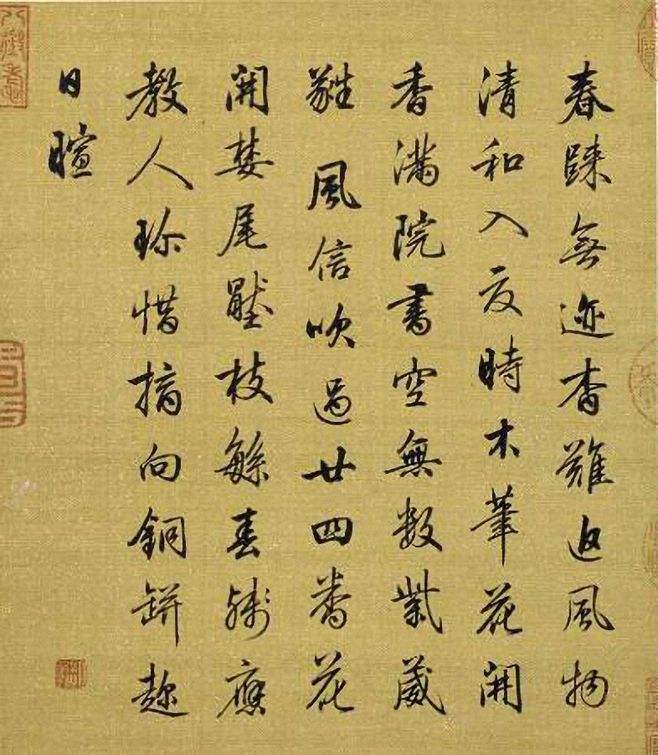 春歸無迹杳難追風物
清和入夏時木筆花開
香滿院書空無數紫葳
蕤 風信吹過廿四番花
開婪尾壓枝繁春殘應
教人珍惜摘向銅缾趂
日暄